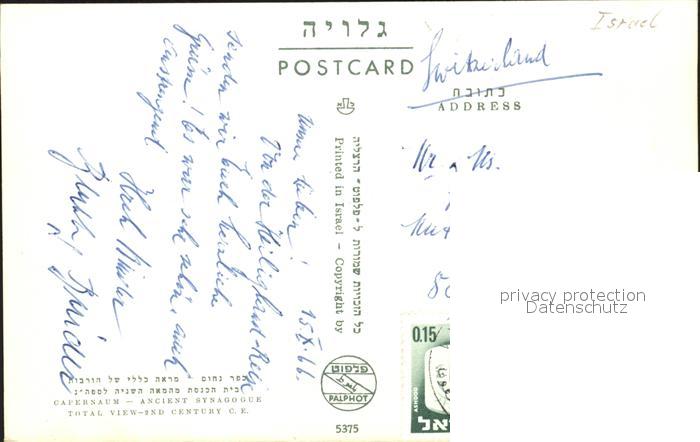 Israel
גלויה
POSTCARD
Switzerland
כתובת
ADDRESS
Mr. & Ms.
privacy protection
Datenschutz
0.15
ASHDOD
כל הזכויות שמורות ל-פלפוט - הרצליה
Printed in Israel - Copyright by
פלפוט
PALPHOT
5375
15.X.66.
Meine Lieben!
Von der Heiligland-Reise
senden wir Euch herzliche
Grüsse! Es war sehr schön, auch
anstrengend.
כפר נחום - מראה כללי של חורבות
בית הכנסת מהמאה השניה לספה"נ
CAPERNAUM - ANCIENT SYNAGOGUE
TOTAL VIEW-2ND CENTURY C.E.